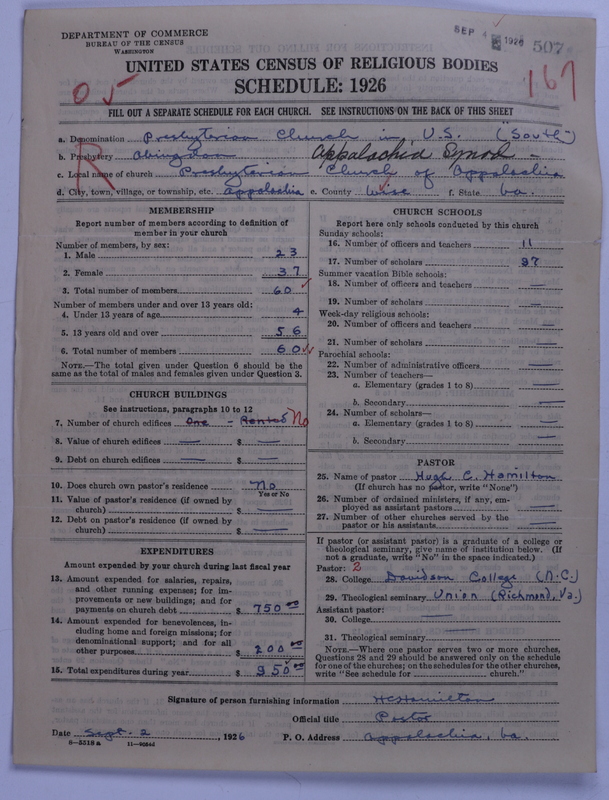 DEPARTMENT OF COMMERCE
BUREAU OF THE CENSUS
WASHINGTON
SEP 4 1926 507
UNITED STATES CENSUS OF RELIGIOUS BODIES
SCHEDULE: 1926
05
167
FILL OUT A SEPARATE SCHEDULE FOR EACH CHURCH. SEE INSTRUCTIONS ON THE BACK OF THIS SHEET
R
a. Denomination Presbyterian Church in U.S. (South)
b. Presbytery Abingdon Appalachia Synod
c. Local name of church Presbyterian Church of Appalachia
d. City, town, village, or township, etc. Appalachia e. County Wise f. State Va.
MEMBERSHIP
Report number of members according to definition of member in your church
Number of members, by sex:
1. Male 23
2. Female 37
3. Total number of members 60
Number of members under and over 13 years old:
4. Under 13 years of age 4
5. 13 years old and over 56
6. Total number of members 60
NOTE.—The total given under Question 6 should be the same as the total of males and females given under Question 3.
CHURCH BUILDINGS
See instructions, paragraphs 10 to 12
7. Number of church edifices One - Rented No
8. Value of church edifices — $ —
9. Debt on church edifices — $ —
10. Does church own pastor's residence No
Yes or No
11. Value of pastor's residence (if owned by church) $ —
12. Debt on pastor's residence (if owned by church) $ —
EXPENDITURES
Amount expended by your church during last fiscal year
13. Amount expended for salaries, repairs, and other running expenses; for improvements or new buildings; and for payments on church debt $ 750 00
14. Amount expended for benevolences, including home and foreign missions; for denominational support; and for all other purposes $ 200 00
15. Total expenditures during year $ 950 00
CHURCH SCHOOLS
Report here only schools conducted by this church
Sunday schools:
16. Number of officers and teachers 11
17. Number of scholars 87
Summer vacation Bible schools:
18. Number of officers and teachers —
19. Number of scholars —
Week-day religious schools:
20. Number of officers and teachers —
21. Number of scholars —
Parochial schools:
22. Number of administrative officers —
23. Number of teachers—
a. Elementary (grades 1 to 8) —
b. Secondary —
24. Number of scholars—
a. Elementary (grades 1 to 8) —
b. Secondary —
PASTOR
25. Name of pastor Hugh C. Hamilton
(If church has no pastor, write "None")
26. Number of ordained ministers, if any, employed as assistant pastors —
27. Number of other churches served by the pastor or his assistants —
If pastor (or assistant pastor) is a graduate of a college or theological seminary, give name of institution below. (If not a graduate, write "No" in the space indicated.)
Pastor: 2
28. College Davidson College (N.C.)
29. Theological seminary Union (Richmond, Va.)
Assistant pastor:
30. College —
31. Theological seminary —
NOTE.—Where one pastor serves two or more churches, Questions 28 and 29 should be answered only on the schedule for one of the churches; on the schedules for the other churches, write "See schedule for church."
Signature of person furnishing information HCHamilton
Official title Pastor
Date Sept. 2, 1926 P. O. Address Appalachia, Va.